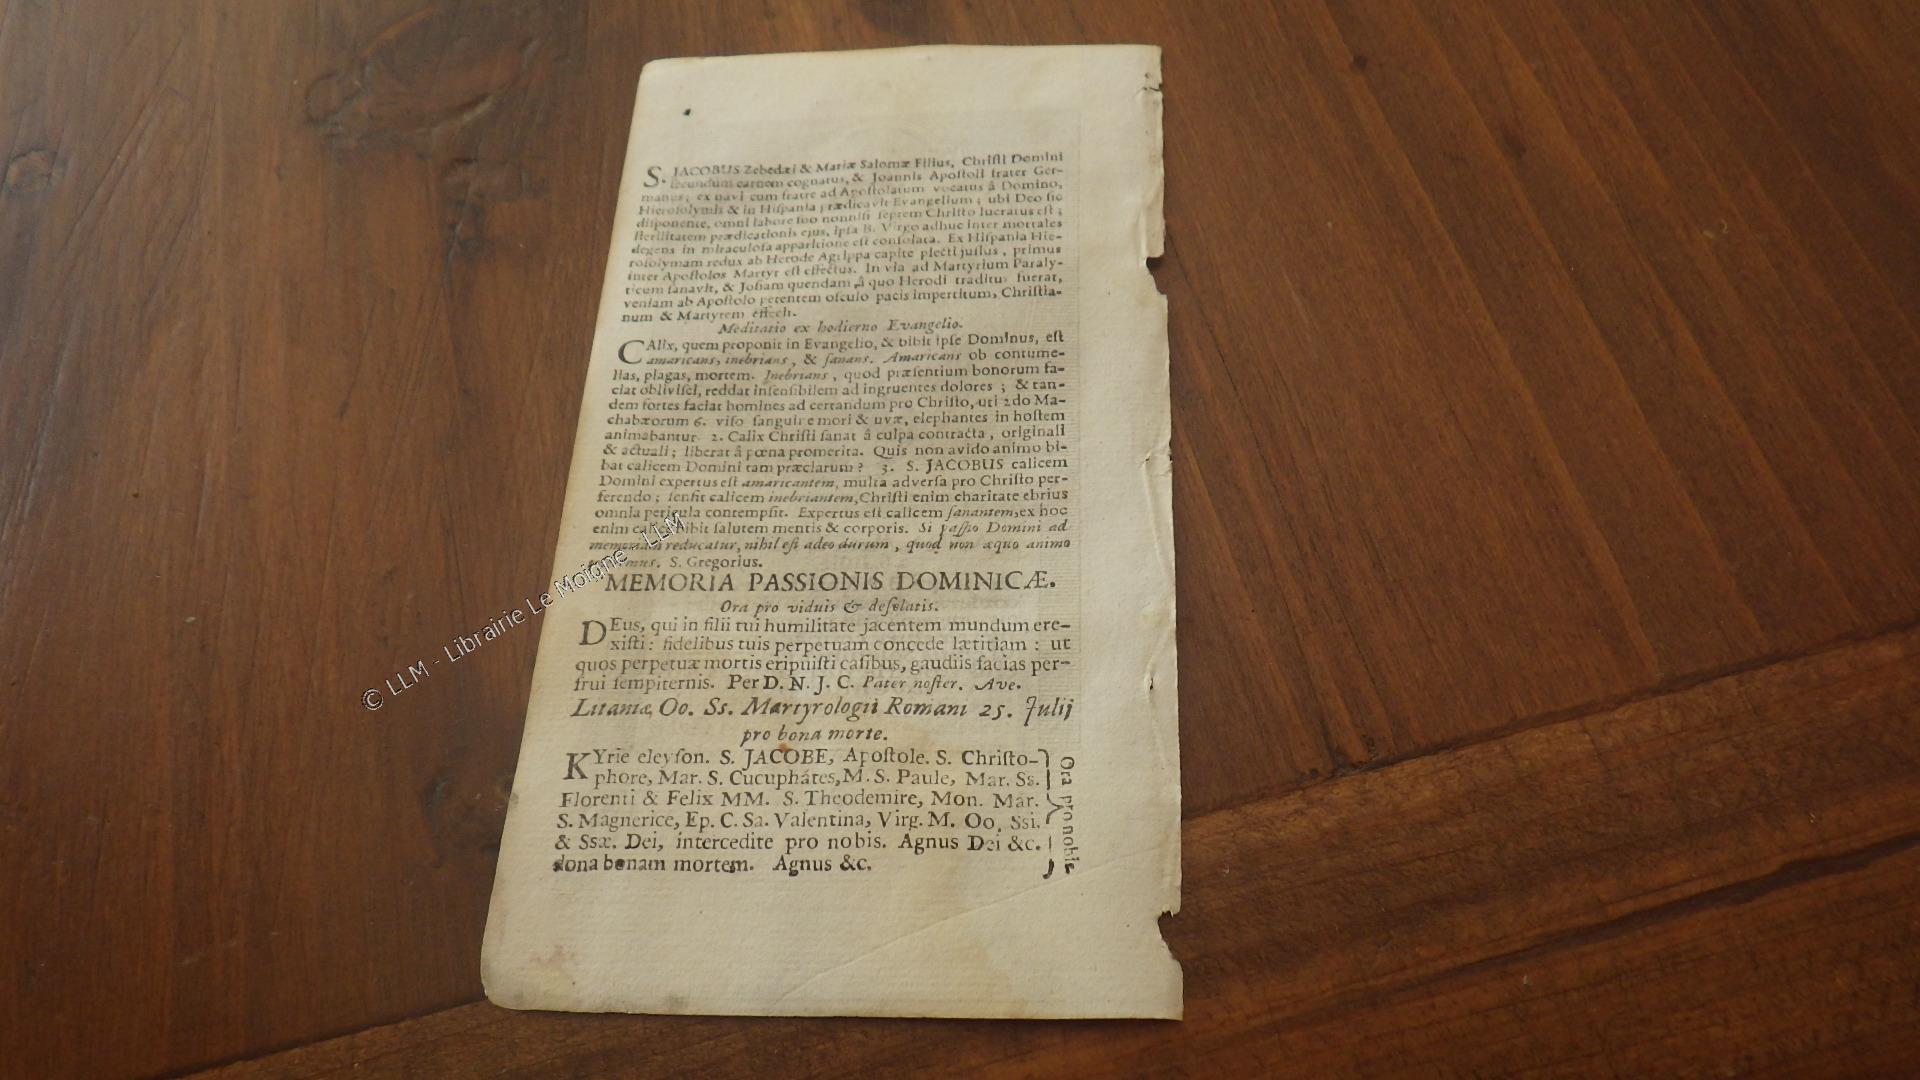 S. JACOBUS Zebedæi & Mariæ Salomæ Filius, Chriſti Domini
ſecundum carnem cognatus, & Joannis Apoſtoli frater Ger-
manus; ex navi cum fratre ad Apoſtolatum vocatus â Domino,
Hieroſolymis & in Hiſpania prædicavit Evangelium; ubi Deo ſic
diſponente, omni labore ſuo nonniſi ſeptem Chriſto lucratus eſt;
ſterilitatem prædicationis ejus, ipſa B. Virgo adhuc inter mortales
degens in miraculoſa apparitione eſt conſolata. Ex Hiſpania Hie-
roſolymam redux ab Herode Agrippa capite plecti juſſus, primus
inter Apoſtolos Martyr eſt effectus. In via ad Martyrium Paraly-
ticum ſanavit, & Joſiam quendam, â quo Herodi traditus fuerat,
veniam ab Apoſtolo petentem oſculo pacis impertitum, Chriſtia-
num & Martyrem effecit.
Meditatio ex hodierno Evangelio.
CAlix, quem proponit in Evangelio, & bibit ipſe Dominus, eſt
amaricans, inebrians, & ſanans. Amaricans ob contume-
lias, plagas, mortem. Inebrians, quod præſentium bonorum fa-
ciat obliviſci, reddat inſenſibilem ad ingruentes dolores; & tan-
dem fortes faciat homines ad certandum pro Chriſto, uti 2do Ma-
chabæorum 6. viſo ſanguine mori & uvæ, elephantes in hoſtem
animabantur. 2. Calix Chriſti ſanat â culpa contracta, originali
& actuali; liberat â pœna promerita. Quis non avido animo bi-
bat calicem Domini tam præclarum? 3. S. JACOBUS calicem
Domini expertus eſt amaricantem, multa adverſa pro Chriſto per-
ferendo; ſenſit calicem inebriantem, Chriſti enim charitate ebrius
omnia pericula contempſit. Expertus eſt calicem ſanantem, ex hoc
enim calice bibit ſalutem mentis & corporis. Si paſſio Domini ad
memoriam reducatur, nihil eſt adeo durum, quod non æquo animo
S. Gregorius.
MEMORIA PASSIONIS DOMINICÆ.
Ora pro viduis & deſolatis.
DEus, qui in filii tui humilitate jacentem mundum ere-
xiſti: fidelibus tuis perpetuam concede lætitiam: ut
quos perpetuæ mortis eripuiſti caſibus, gaudiis facias per-
frui ſempiternis. Per D. N. J. C. Pater noſter. Ave.
Litaniæ Oo. Ss. Martyrologii Romani 25. Julij
pro bona morte.
KYrie eleyſon. S. JACOBE, Apoſtole. S. Chriſto-
phore, Mar. S. Cucuphátes, M. S. Paule, Mar. Ss.
Florenti & Felix MM. S. Theodemire, Mon. Mar.
S. Magnerice, Ep. C. Sa. Valentina, Virg. M. Oo. Ssi.
& Ssæ. Dei, intercedite pro nobis. Agnus Dei &c.
dona bonam mortem. Agnus &c.
Ora pro nobis
© LLM - Librairie Le Moione - LLM